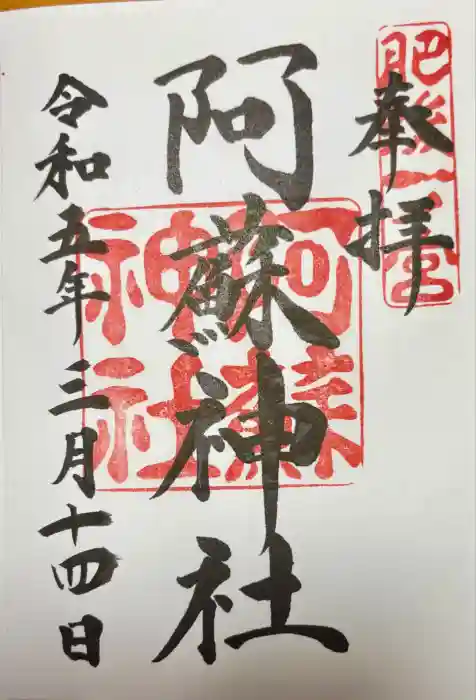 奉拝
肥後一宮
阿蘇神社
阿蘇神社
令和五年三月十四日